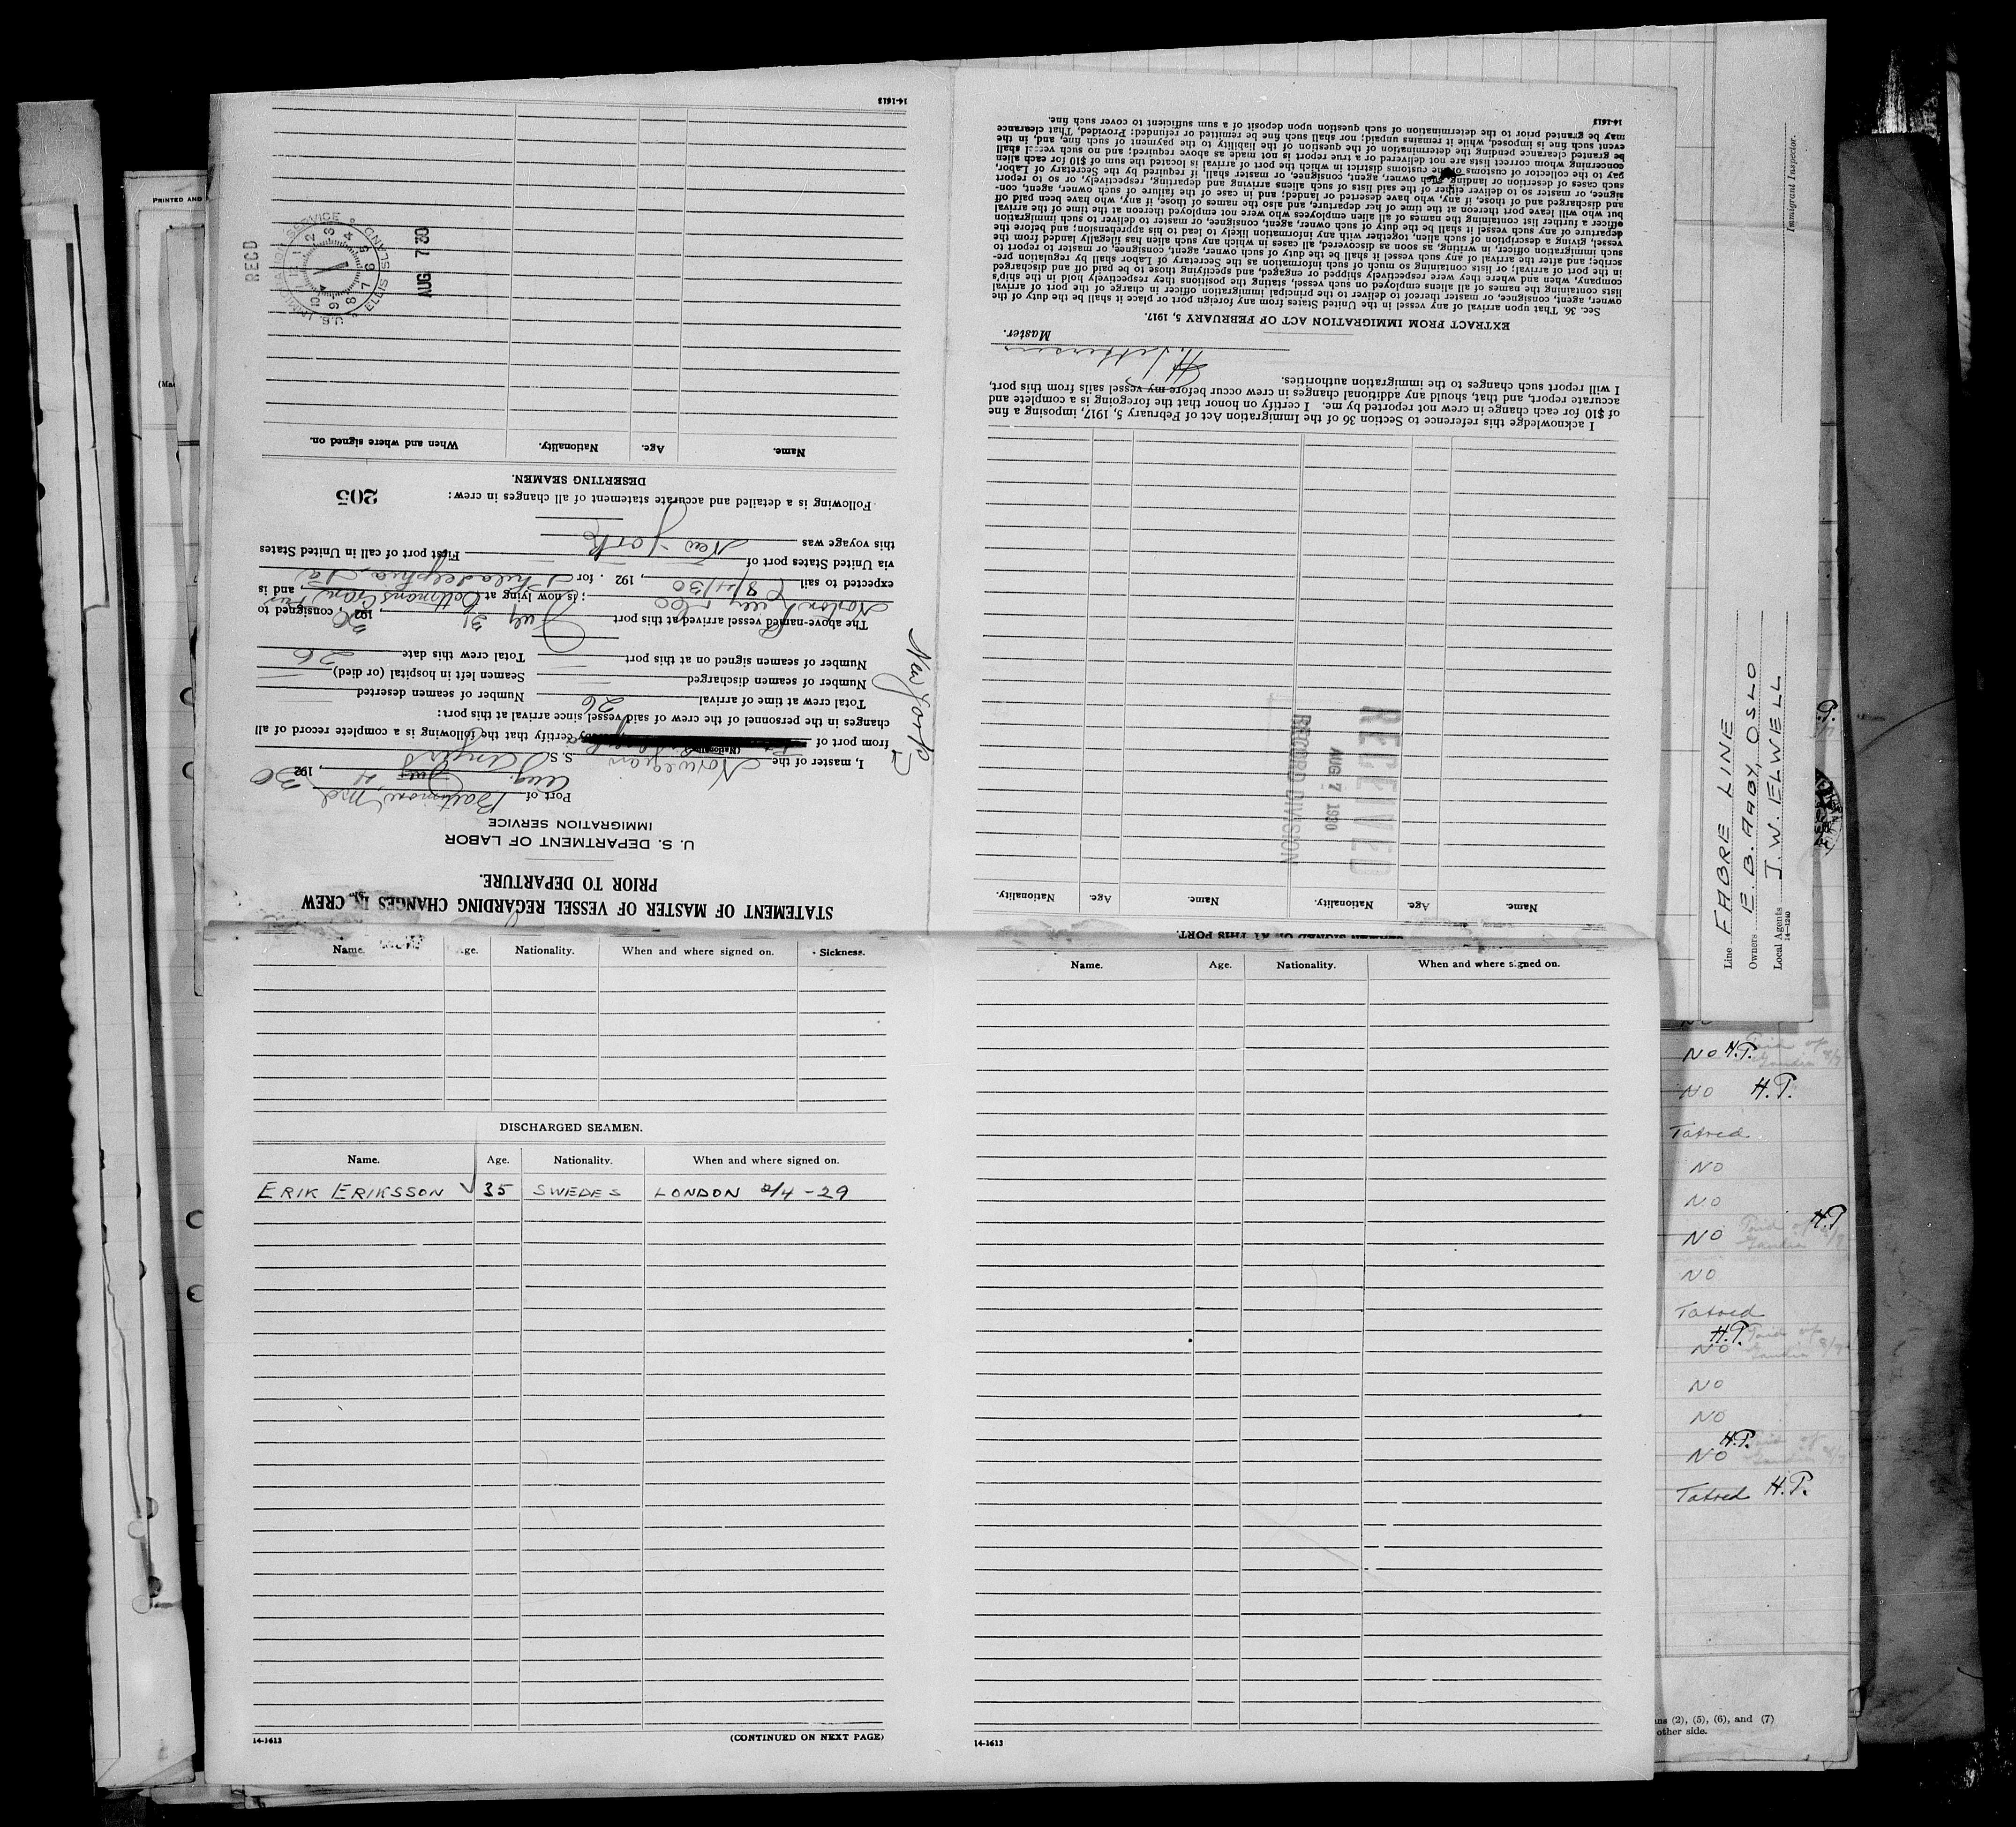 STATEMENT OF MASTER OF VESSEL REGARDING CHANGES IN CREW
PRIOR TO DEPARTURE.
U. S. DEPARTMENT OF LABOR
IMMIGRATION SERVICE
Port of Baltimore, Md
Aug. 4, 1930
I, master of the Norwegian S. S.
(Nationality)
from port of
certify that the following is a complete record of all
changes in the personnel of the crew of said vessel since arrival at this port:
New York
Total crew at time of arrival 26 Number of seamen deserted
Number of seamen discharged Seamen left in hospital (or died)
Number of seamen signed on at this port Total crew this date 26
The above-named vessel arrived at this port July 31, 1930, consigned to
Norton Lilly & Co ; is now lying at and is
expected to sail 8/4/30, 192 . for Philadelphia, Pa
via United States port of First port of call in United States
this voyage was New York
Following is a detailed and accurate statement of all changes in crew:
205
DESERTING SEAMEN.
Name. Age. Nationality. When and where signed on.
RECD
U.S. IMMIGRATION SERVICE
ELLIS ISLAND
AUG 7 30
14-1613
SEAMEN SIGNED ON AT THIS PORT.
Name. Age. Nationality. Name. Age. Nationality.
RECEIVED
AUG 7 1930
RECORD DIVISION
I acknowledge this reference to Section 36 of the Immigration Act of February 5, 1917, imposing a fine
of $10 for each change in crew not reported by me. I certify on honor that the foregoing is a complete and
accurate report, and that, should any additional changes in crew occur before my vessel sails from this port,
I will report such changes to the immigration authorities.
Master.
EXTRACT FROM IMMIGRATION ACT OF FEBRUARY 5, 1917.
Sec. 36. That upon arrival of any vessel in the United States from any foreign port or place it shall be the duty of the
owner, agent, consignee, or master thereof to deliver to the principal immigration officer in charge of the port of arrival
lists containing the names of all aliens employed on such vessel, stating the positions they respectively hold in the ship's
company, when and where they were respectively shipped or engaged, and specifying those to be paid off and discharged
in the port of arrival; or lists containing so much of such information as the Secretary of Labor shall by regulation pre-
scribe; and after the arrival of any such vessel it shall be the duty of such owner, agent, consignee, or master to report to
such immigration officer, in writing, as soon as discovered, all cases in which any such alien has illegally landed from the
vessel, giving a description of such alien, together with any information likely to lead to his apprehension; and before the
departure of any such vessel it shall be the duty of such owner, agent, consignee, or master to deliver to such immigration
officer a further list containing the names of all alien employees who were not employed thereon at the time of the arrival
but who will leave port thereon at the time of her departure, and also the names of those, if any, who have been paid off
and discharged and of those, if any, who have deserted or landed; and in case of the failure of such owner, agent, con-
signee, or master so to deliver either of the said lists of such aliens arriving and departing, respectively, or so to report
such cases of desertion or landing, such owner, agent, consignee, or master shall, if required by the Secretary of Labor,
pay to the collector of customs of the customs district in which the port of arrival is located the sum of $10 for each alien
concerning whom correct lists are not delivered or a true report is not made as above required; and no such vessel shall
be granted clearance pending the determination of the question of the liability to the payment of such fine, and, in the
event such fine is imposed, while it remains unpaid; nor shall such fine be remitted or refunded: Provided, That clearance
may be granted prior to the determination of such question upon deposit of a sum sufficient to cover such fine.
14-1613
Name. Age. Nationality. When and where signed on. Sickness.
DISCHARGED SEAMEN.
Name. Age. Nationality. When and where signed on.
ERIK ERIKSSON ✓ 35 SWEDES LONDON 2/4-29
14-1613 (CONTINUED ON NEXT PAGE)
Name. Age. Nationality. When and where signed on.
14-1613
PRINTED AND
Immigrant Inspector.
Line FABRE LINE
Owners E. B. AABY, OSLO
Local Agents J. W. ELWELL
14-1240
NO H.P.
NO H.P.
Tatred
NO
NO
NO H.P.
NO
Tatred
H.P.
NO
NO
NO
H.P.
NO
Tatred H.P.
ns (2), (5), (6), and (7)
other side.